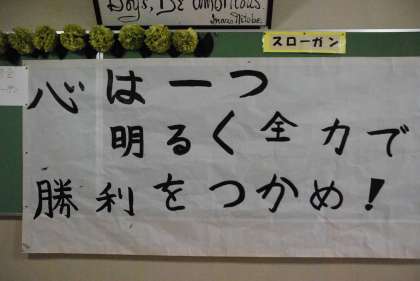 Boys, Be ambitious.
Inazo Nitobe.
スローガン
心は一つ
明るく全力で
勝利をつかめ!